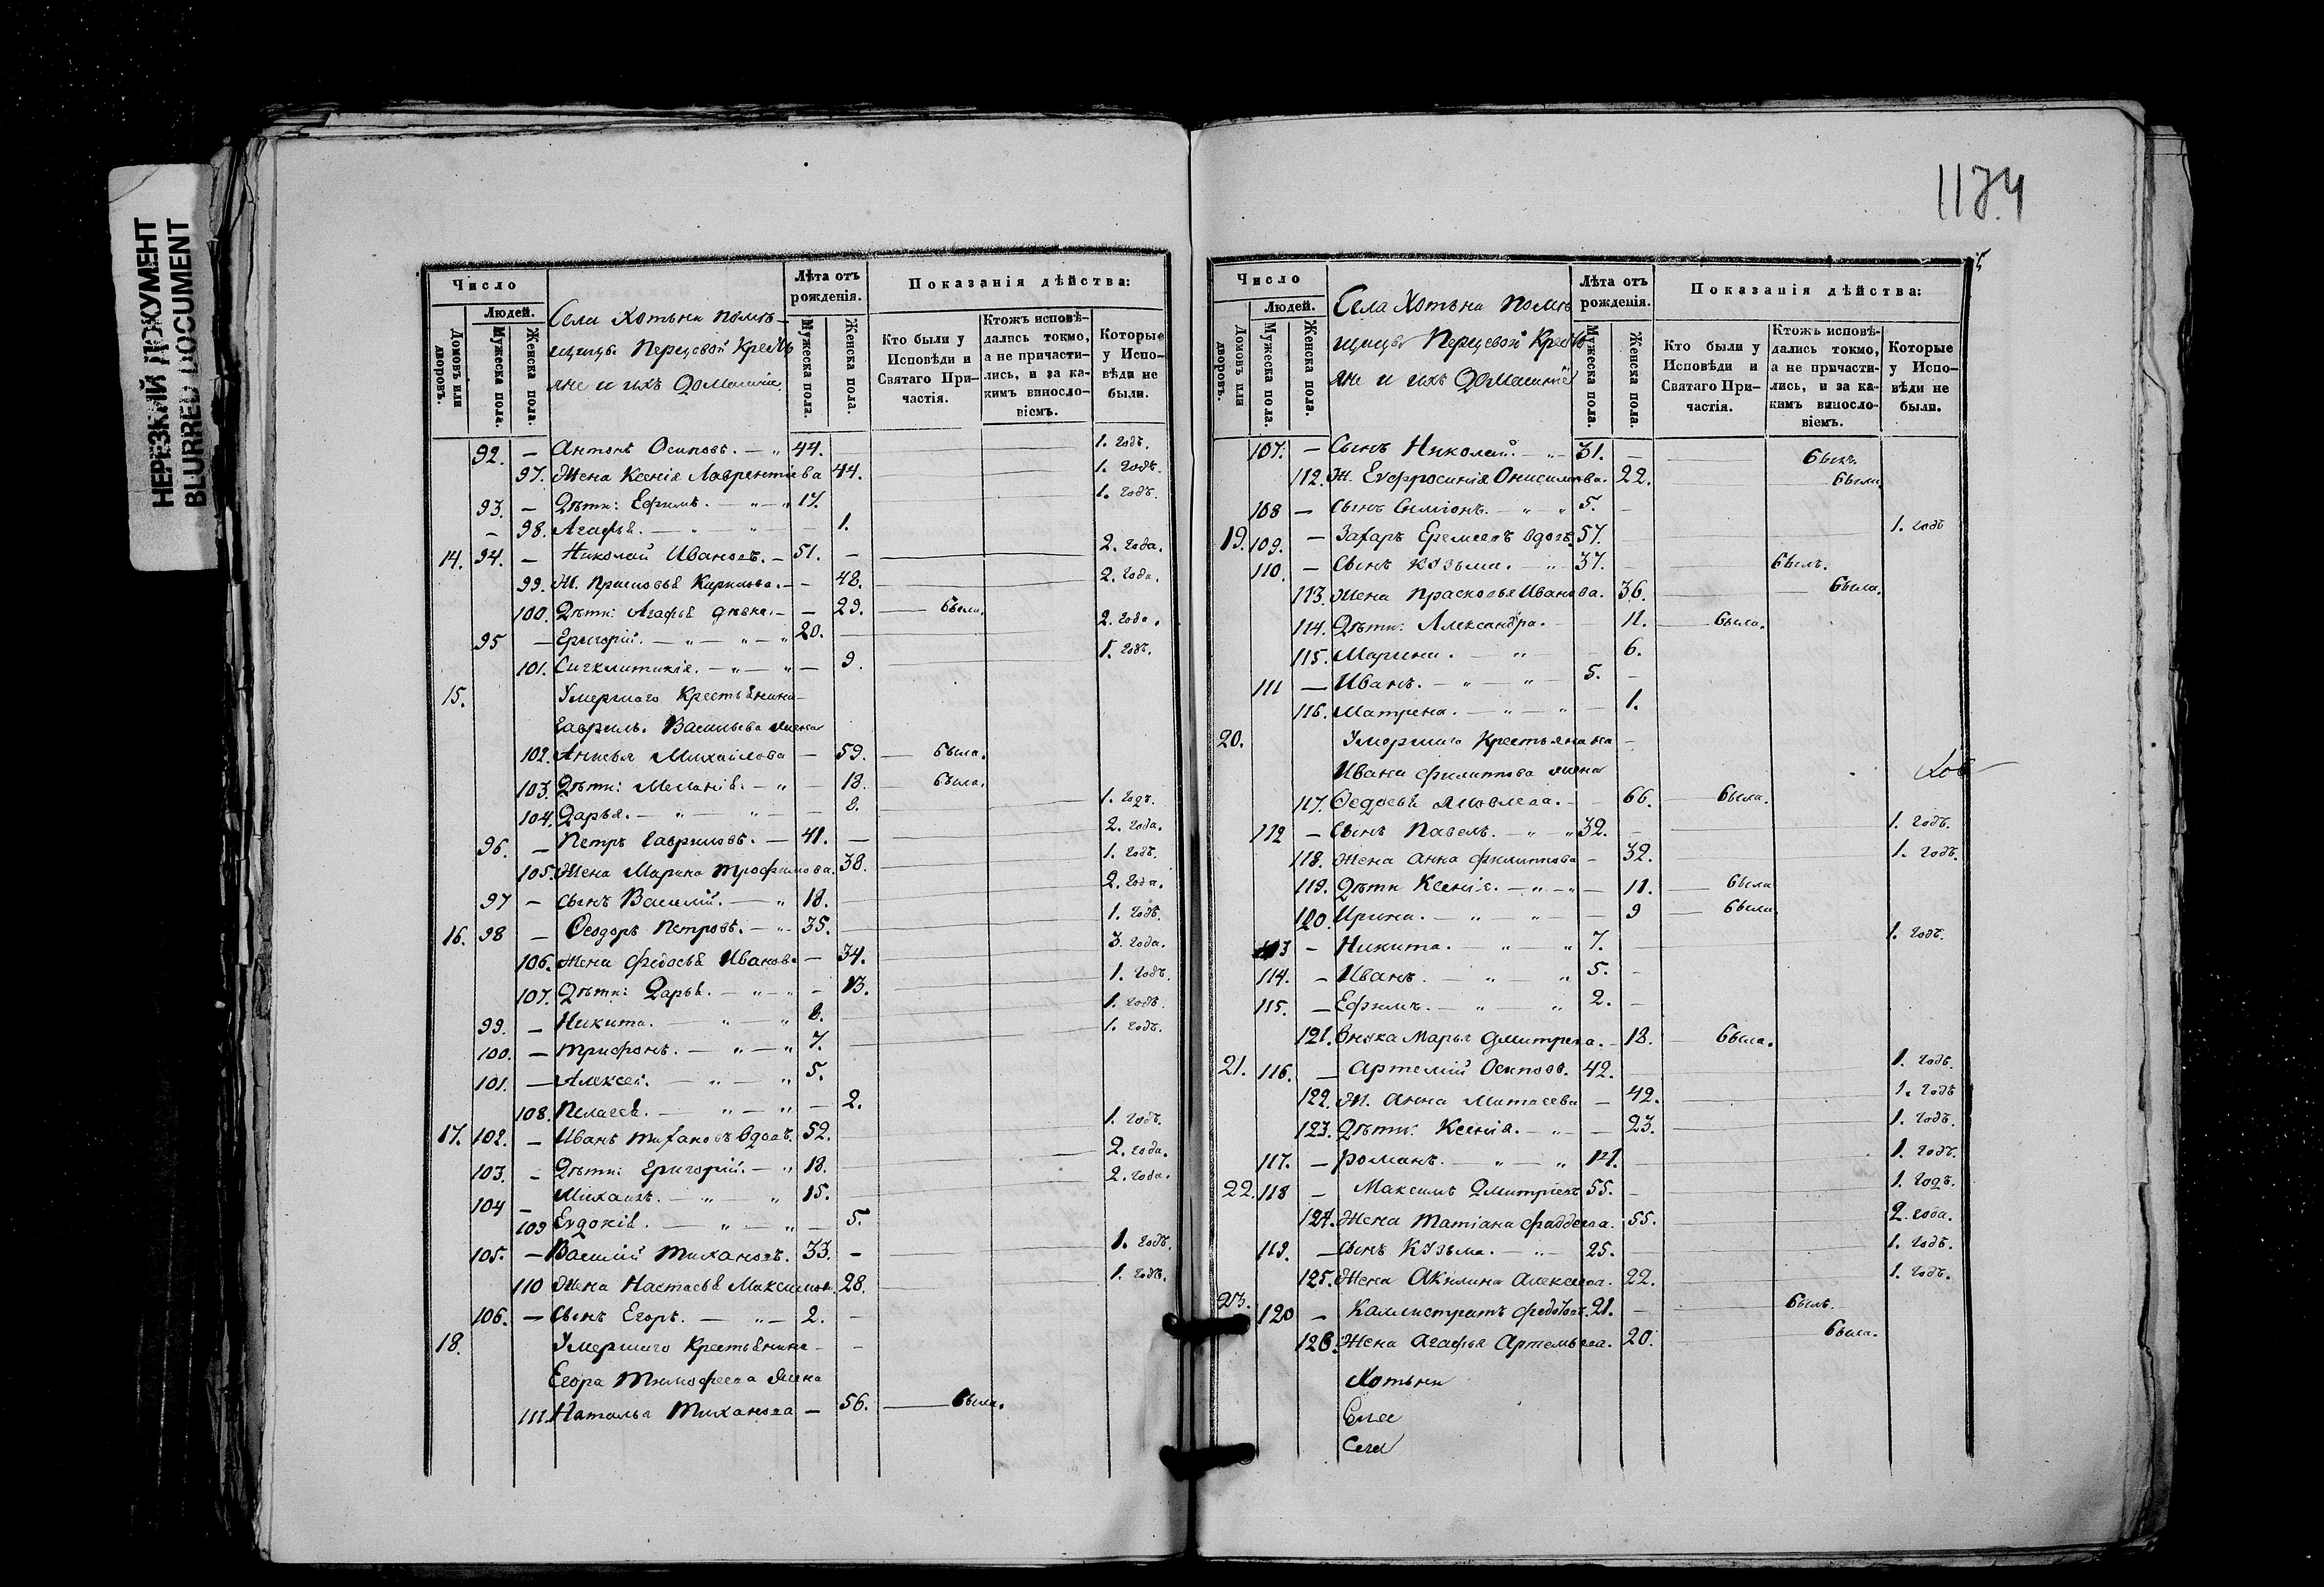 НЕРЕЗКИЙ ДОКУМЕНТ
BLURRED DOCUMENT
1174
Число
Людей.
Домовъ или дворовъ.
Мужеска пола.
Женска пола.
Села Хотьни помѣ-
щицы Перцевой Кресть
яне и ихъ домашніе
Лѣта отъ рожденія.
Мужеска пола.
Женска пола.
Показанія дѣйства:
Кто были у Исповѣди и Святаго При-частія.
Ктожъ исповѣ-дались токмо, а не причасти-лись, и за ка-кимъ винослo-віемъ.
Которые у Испо-вѣди не были.
92. — Антонъ Осиповъ. — 44. 1. годъ.
97. Жена Ксенія Лаврентіева 44. 1. годъ.
93. — Дѣти: Ефимъ. — 17. 1. годъ.
— 98. Агафья. — 1.
14. 94. — Николай Ивановъ. — 51. — 2. года.
99. Ж. Прасковья Кирилова. — 48. 2. года.
100. Дѣти: Агафья дѣвка. — 29. — была.
95 — Григорій. — 20. — 2. года.
101. Сигклитикія. — 9. 1. годъ.
15. Умершаго Крестьянина
Гаврилы Васильева жена
102. Анисья Михайлова — 59. — была.
103. Дѣти: Меланія. — 13. — была.
104. Дарья. — 8. 1. годъ.
96. — Петръ Гавриловъ. — 41. — 2. года.
105. Жена Марина Трофимова. 38. 1. годъ.
97 — Сынъ Василій. — 18. 2. года.
16. 98 — Ѳеодоръ Петровъ. — 35. 1. годъ.
106. Жена Федосья Иванова — 34. 3. года.
107. Дѣти: Дарья. — 13. 1. годъ.
99. — Никита. — 8. 1. годъ.
100. — Трифонъ. — 7. 1. годъ.
101. — Алексей. — 5.
108. Пелагея. — 2.
17. 102. — Иванъ Тихановъ вдовъ. 52. 1. годъ.
103. — Дѣти: Григорій. — 18. 2. года.
104 — Михаилъ. — 15. 2. года.
109 Евдокія. — 5.
105. — Василій Тихановъ. 33. — 1. годъ.
110 Жена Настасья Максимова. 28. 1. годъ.
106. — Сынъ Егоръ. — 2. —
18. Умершаго Крестьянина —
Егора Тимофеева жена
111. Наталья Тиханова — 56. — была.
Число
Людей.
Домовъ или дворовъ.
Мужеска пола.
Женска пола.
Села Хотьни помѣ
щицы Перцевой Кресть
яне и ихъ домашніе
Лѣта отъ рожденія.
Мужеска пола.
Женска пола.
Показанія дѣйства:
Кто были у Исповѣди и Святаго При-частія.
Ктожъ исповѣ-дались токмо, а не причасти-лись, и за ка-кимъ винослo-віемъ.
Которые у Испо-вѣди не были.
107. — Сынъ Николай. — 31. — былъ.
112. Ж. Евфросинія Онисимова. 22. была.
108 — Сынъ Симіонъ. — 5. —
19. 109. — Захаръ Еремеевъ вдовъ. 57. 1. годъ
110. — Сынъ Козьма. — 37. — былъ.
113. Жена Прасковья Иванова. 36. — была.
114. Дѣти: Александра. — 11. — была.
115. Марина. — 6.
111 — Иванъ. — 5. —
116. Матрена. — 1.
20. Умершаго Крестьянина —
Ивана Филиппова жена
117. Ѳедосья Яковлева. — 66. — была.
112 — Сынъ Павелъ. — 32. — 1. годъ.
118. Жена Анна Филиппова — 32. 1. годъ.
119. Дѣти Ксенія. — 11. — была
120. Ирина. — 9 — была.
113 — Никита. — 7. — 1. годъ.
114. — Иванъ. — 5. —
115. — Ефимъ. — 2. —
121. Внука Марья Дмитрева. — 13. — была.
21. 116. — Артемій Осиповъ. 42. 1. годъ.
122. Ж. Анна Матвеева — 42. 1. годъ
123. Дѣти: Ксенія. — 23. 1. годъ.
117. — Романъ. — 14. 1. годъ.
22. 118 — Максимъ Дмитріевъ 55. — 1. годъ.
124. Жена Татіана Фаддеева. 55. 2. года.
119. — Сынъ Козьма. — 25. 1. годъ.
125. Жена Акилина Алексеева. 22. 1. годъ.
23. 120 — Каллистратъ Федотовъ. 21. — былъ.
126. Жена Агафья Артемьева. 20. была.
Хотьни